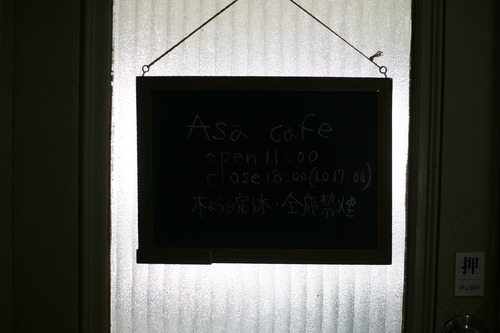 Asa cafe
open 11:00
close 18:00(LO 17:00)
木よう定休・全席禁煙
押
PUSH